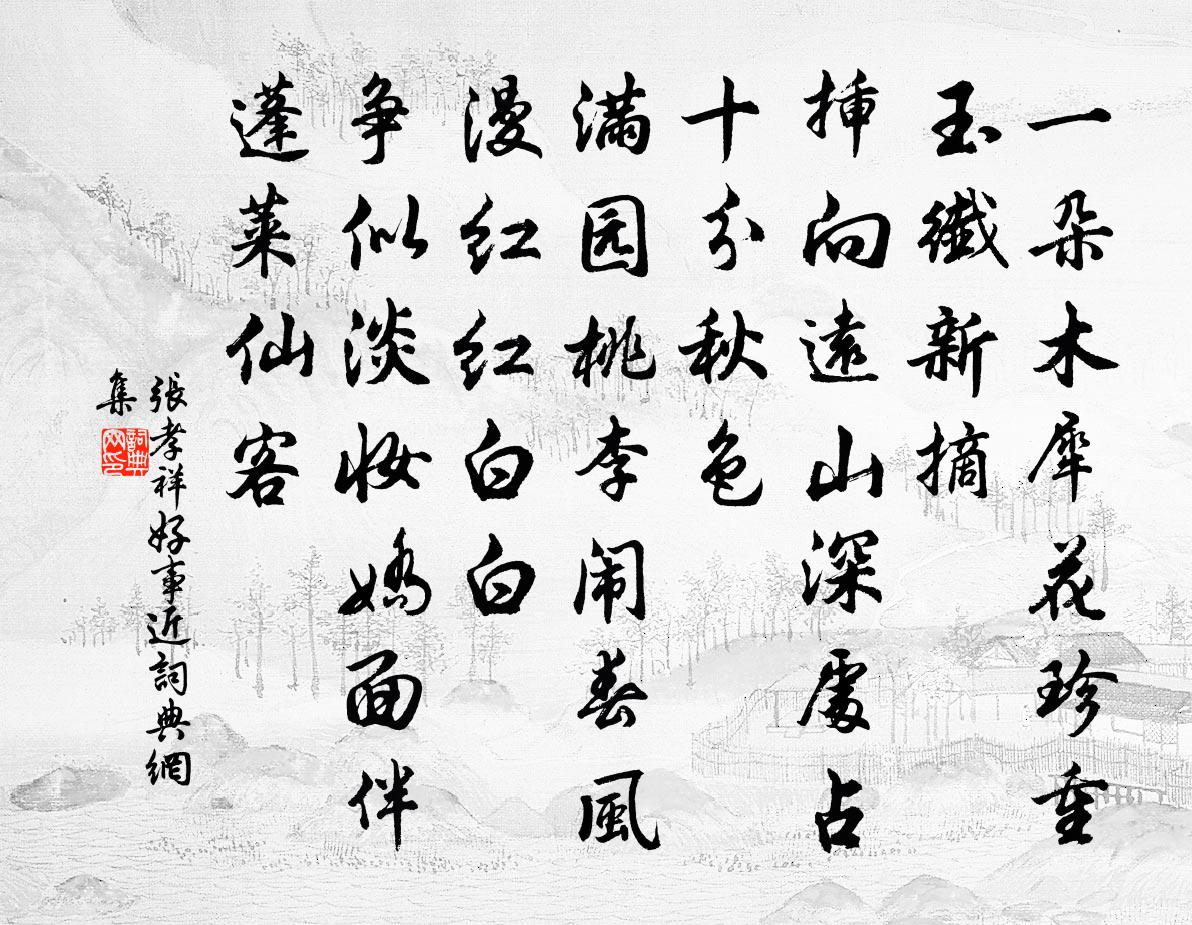 一朵木犀花珍重
玉纖新摘
揷向遠山深處占
十分秋色
满园桃李闹春風
漫红红白白
争似淡妝嬌面伴
蓬萊仙客
張孝祥好事近詞典網
集
詞典
網印